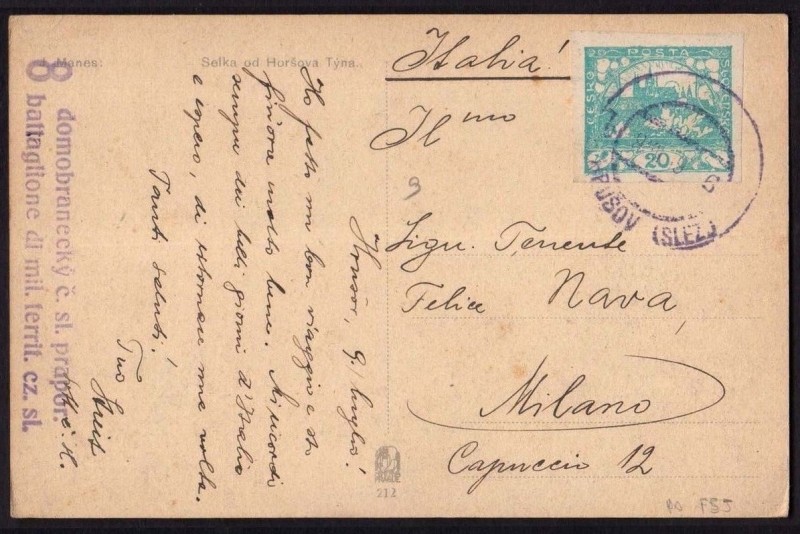 J. Manes:
Selka od Horšova Týna.
Hrušov, 9./luglio!
Ho fatto un bon viaggio e sto
finora molto bene. Mi ricordi
sempre dei belli giorni d'Italia
e spero, di ritornare una volta.
Tanti saluti!
Tuo
8 domobranecký č. sl. prapor.
8 battaglione di mil. territ. cz. sl.
Italia!
Il mo
9
Sign. Tenente
Felice Nava,
Milano
Capuccio 12
POSTA
ČESKO
SLOVENSKÁ
20
HRUSOV (SLEZ.)
212
FSJ